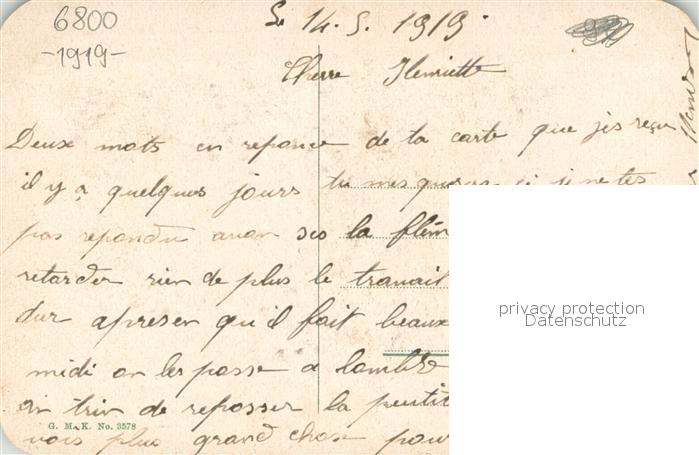 6800
-1919-
Le 14. 5. 1919.
Cherre Henriette
Deux mots en reponce de ta carte que jés reçu
il y a quelques jours tu
pas repondu avan la flèm
retarder rien de plus le travail
dur apresen qu'il fait beaux
midi on les passe a lombre
en trin de reposser la peutit
vois plus grand chose pour
G. M. K. No. 3578
privacy protection
Datenschutz